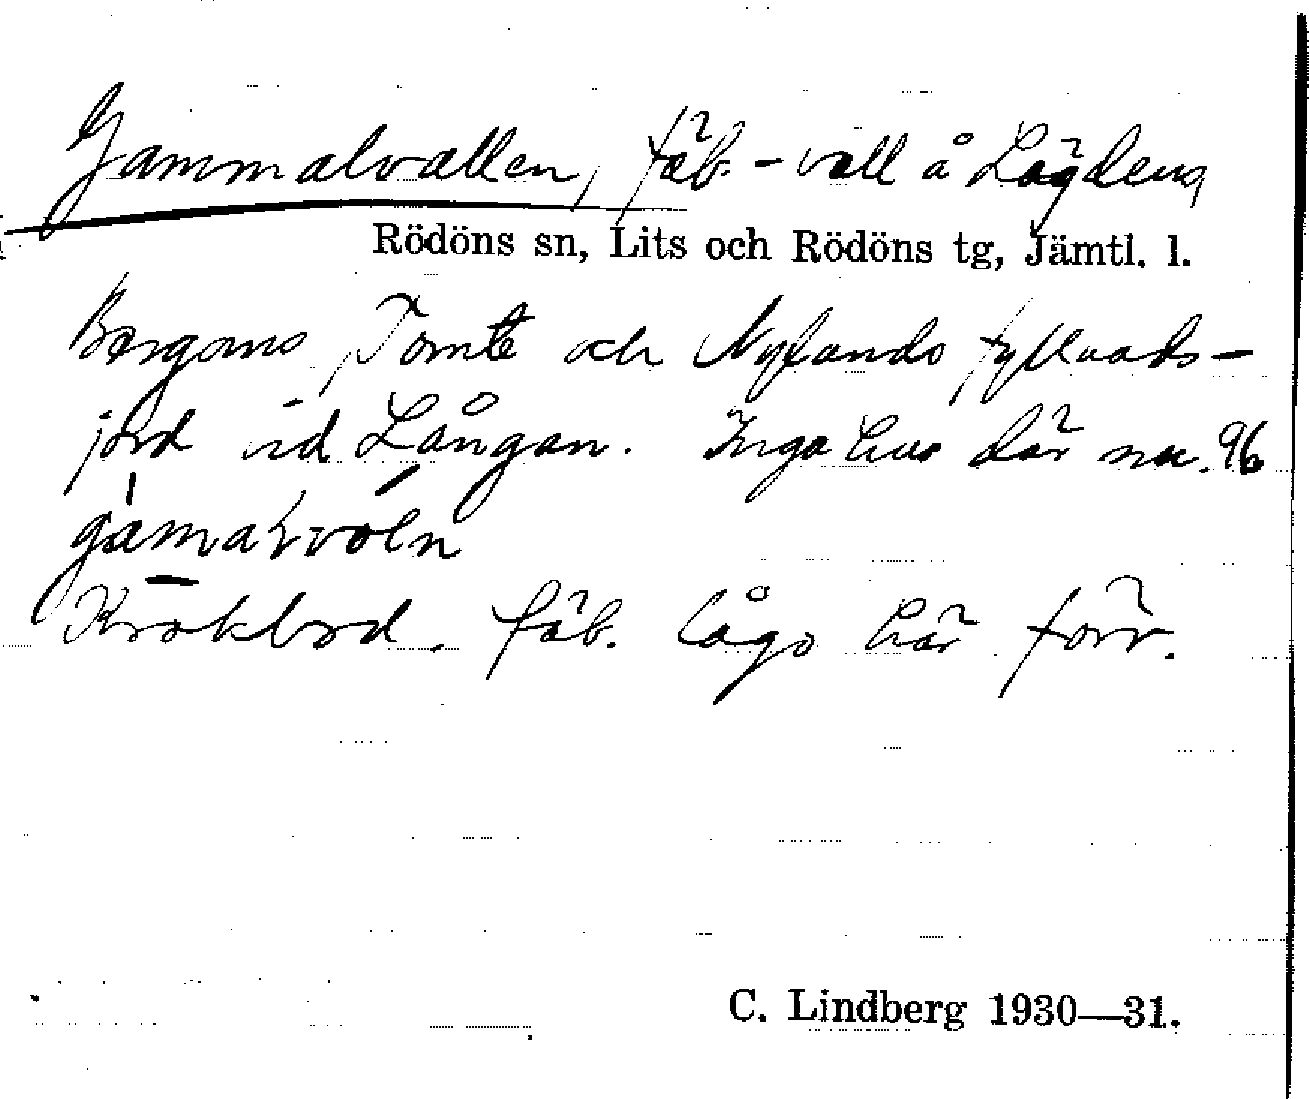 Gammalvallen, fäb.-vall å Lägdens
Rödöns sn, Lits och Rödöns tg, Jämtl. l.
Bergoms, Tomte och Nylands fyllnads-
jord vid Långan. Inga hus där nu. 96
Krokbod. fäb. lågo här förr.
C. Lindberg 1930—31.